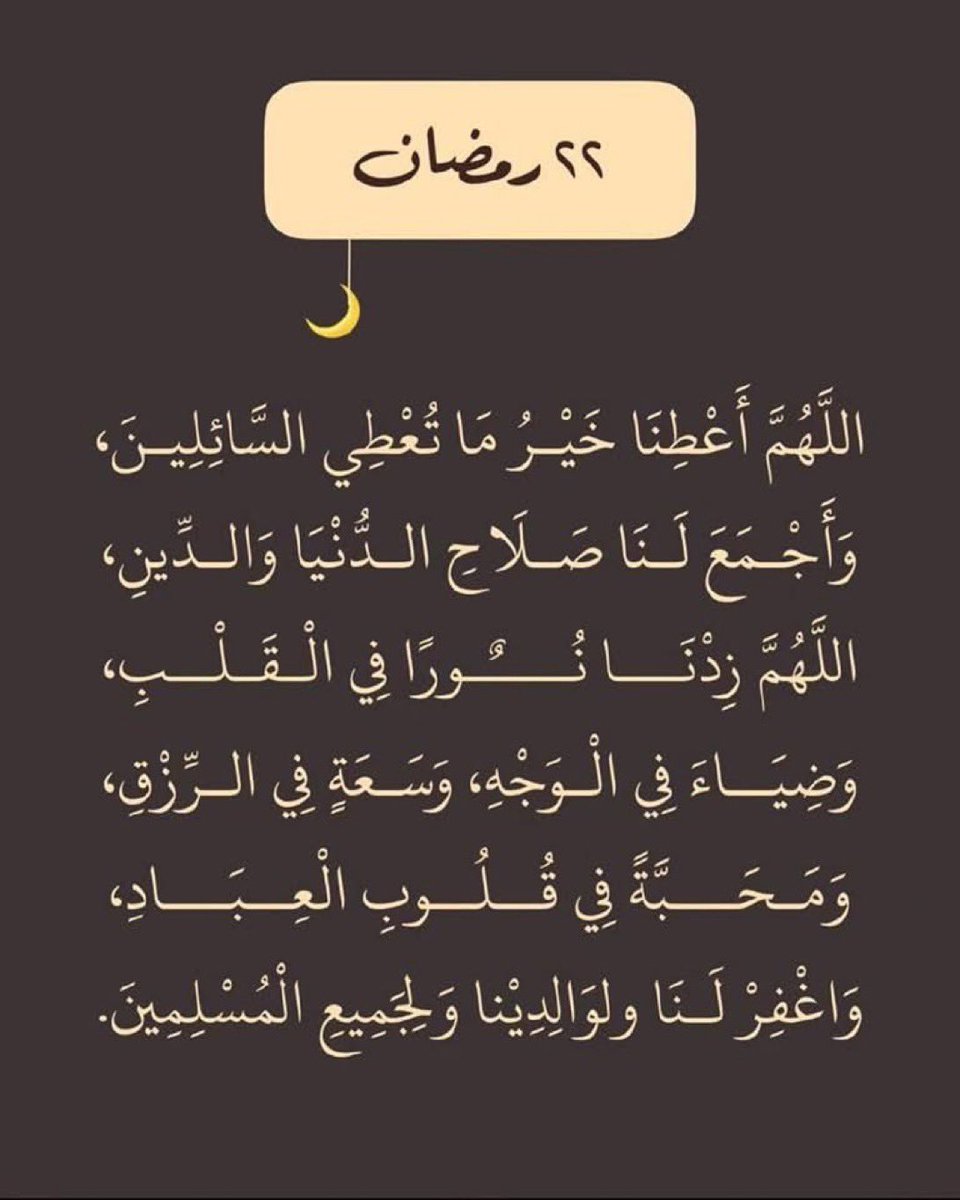 ٢٢ رمضان
اللَّهُمَّ أَعْطِنَا خَيْرُ مَا تُعْطِي السَّائِلِينَ،
وَأَجْمَعَ لَنَا صَلَاحِ الدُّنْيَا وَالدِّينِ،
اللَّهُمَّ زِدْنَا نُورًا فِي الْقَلْبِ،
وَضِيَاءَ فِي الْوَجْهِ، وَسَعَةٍ فِي الرِّزْقِ،
وَمَحَبَّةً فِي قُلُوبِ الْعِبَادِ،
وَاغْفِرْ لَنَا ولوَالِدِيْنا وَلِجَمِيعِ الْمُسْلِمِينَ.